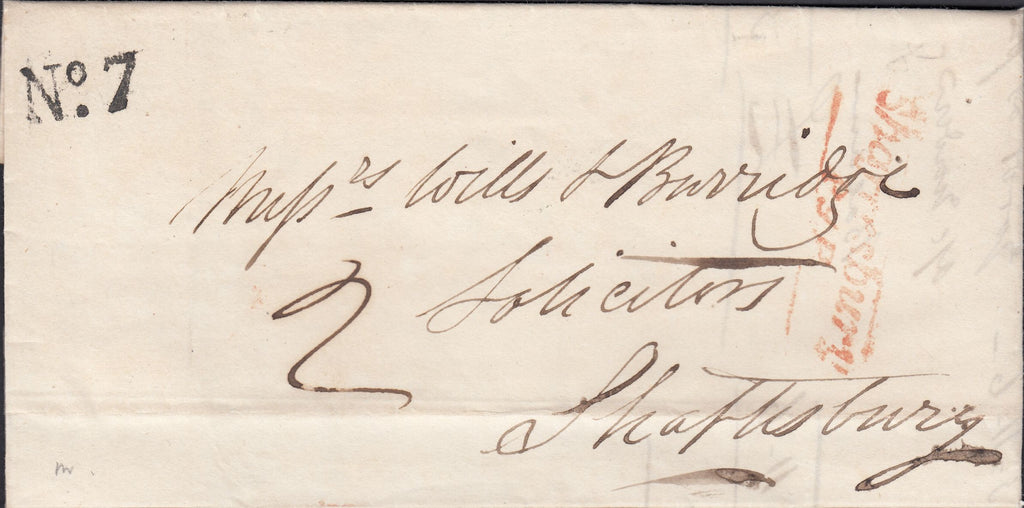 No. 7
Messrs Wills & Burridge
Solicitors
2
Shaftesbury
Shaftesbury